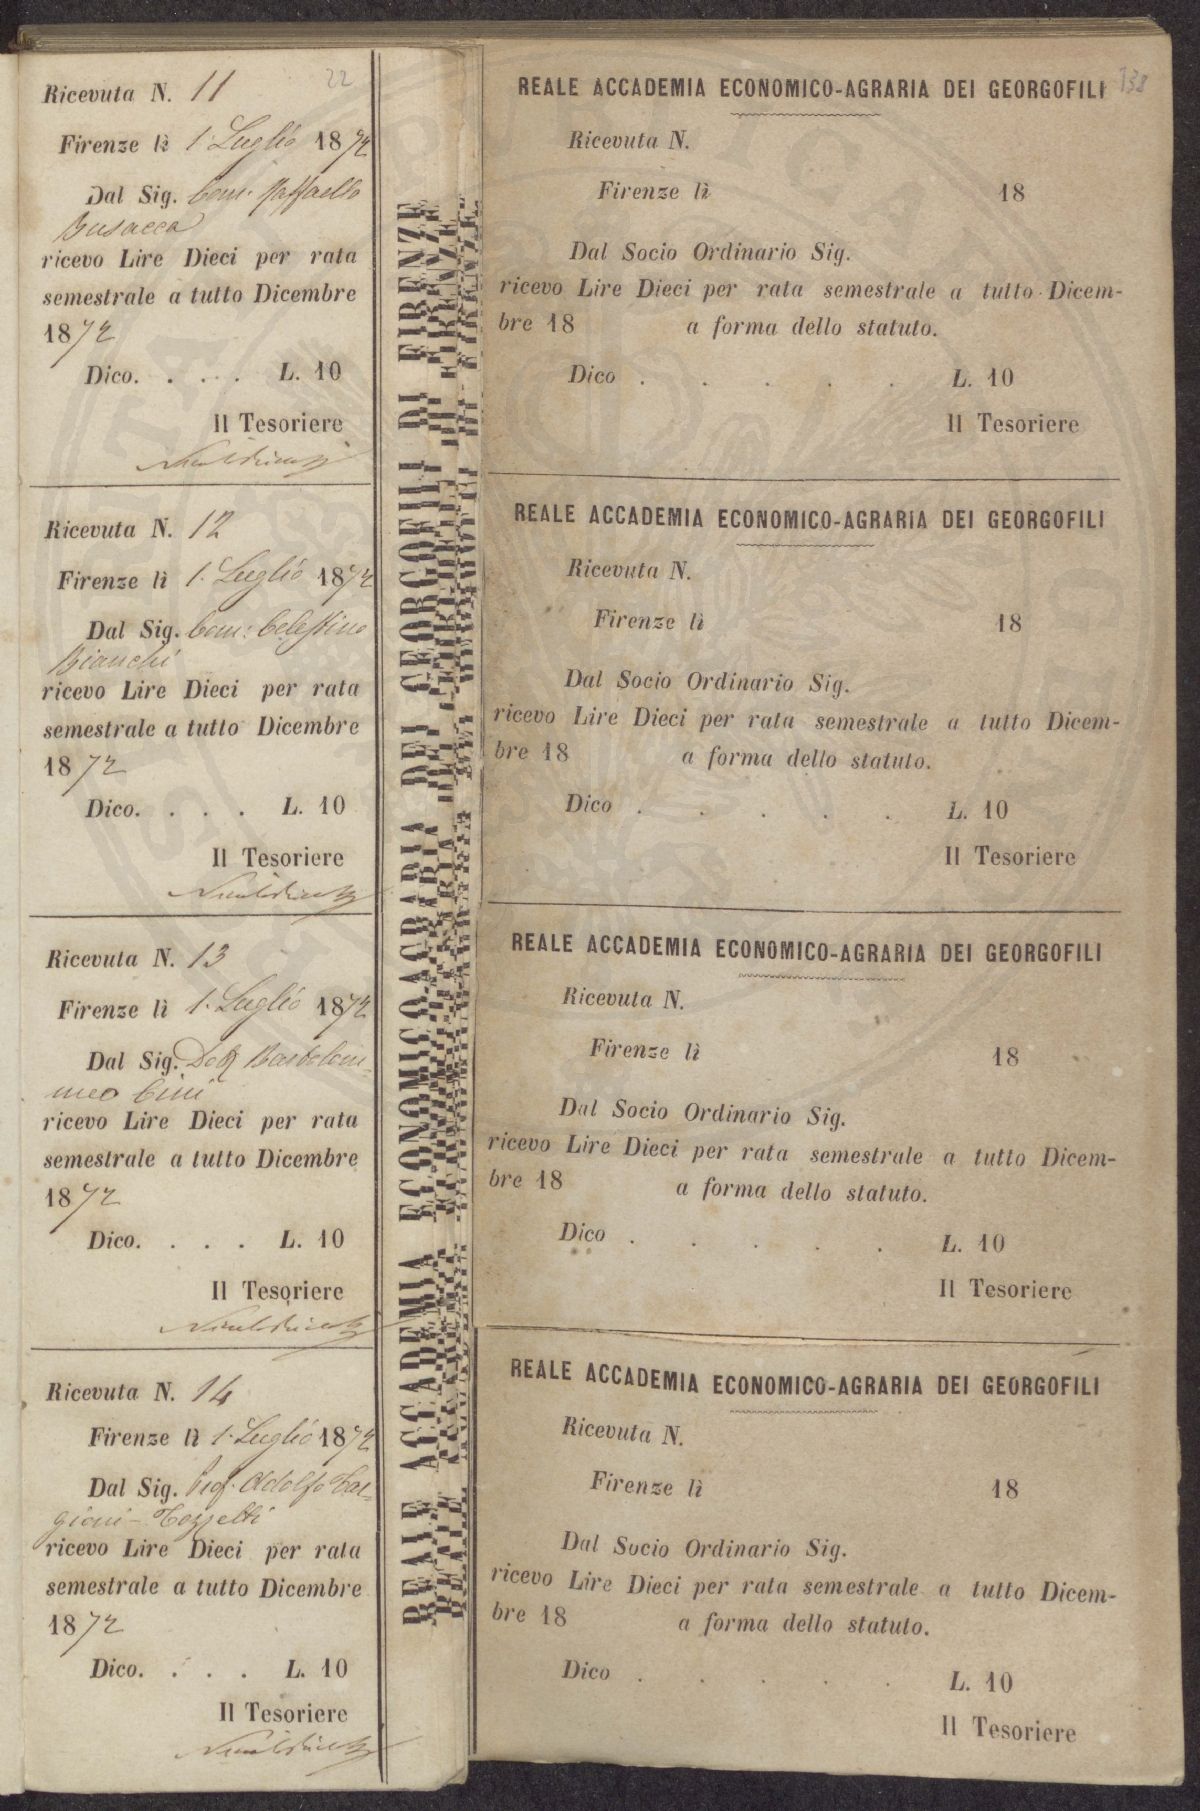 22
Ricevuta N. 11
Firenze lì 1. Luglio 1872
Dal Sig. Com. Raffaello
Busacca
ricevo Lire Dieci per rata
semestrale a tutto Dicembre
1872
Dico. . . . L. 10
Il Tesoriere
Ricevuta N. 12
Firenze lì 1. Luglio 1872
Dal Sig. Com: Celestino
Bianchi
ricevo Lire Dieci per rata
semestrale a tutto Dicembre
1872
Dico. . . . L. 10
Il Tesoriere
Ricevuta N. 13
Firenze lì 1. Luglio 1872
Dal Sig. Dott Bartolom-
meo Cini
ricevo Lire Dieci per rata
semestrale a tutto Dicembre
1872
Dico. . . . L. 10
Il Tesoriere
Ricevuta N. 14
Firenze lì 1. Luglio 1872
Dal Sig. Prof. Adolfo Tar-
gioni-Tozzetti
ricevo Lire Dieci per rata
semestrale a tutto Dicembre
1872
Dico. . . . L. 10
Il Tesoriere
REALE ACCADEMIA ECONOMICO-AGRARIA DEI GEORGOFILI DI FIRENZE
138
REALE ACCADEMIA ECONOMICO-AGRARIA DEI GEORGOFILI
Ricevuta N.
Firenze lì 18
Dal Socio Ordinario Sig.
ricevo Lire Dieci per rata semestrale a tutto Dicem-
bre 18 a forma dello statuto.
Dico . . . . . L. 10
Il Tesoriere
REALE ACCADEMIA ECONOMICO-AGRARIA DEI GEORGOFILI
Ricevuta N.
Firenze lì 18
Dal Socio Ordinario Sig.
ricevo Lire Dieci per rata semestrale a tutto Dicem-
bre 18 a forma dello statuto.
Dico . . . . . L. 10
Il Tesoriere
REALE ACCADEMIA ECONOMICO-AGRARIA DEI GEORGOFILI
Ricevuta N.
Firenze lì 18
Dal Socio Ordinario Sig.
ricevo Lire Dieci per rata semestrale a tutto Dicem-
bre 18 a forma dello statuto.
Dico . . . . . L. 10
Il Tesoriere
REALE ACCADEMIA ECONOMICO-AGRARIA DEI GEORGOFILI
Ricevuta N.
Firenze lì 18
Dal Socio Ordinario Sig.
ricevo Lire Dieci per rata semestrale a tutto Dicem-
bre 18 a forma dello statuto.
Dico . . . . . L. 10
Il Tesoriere